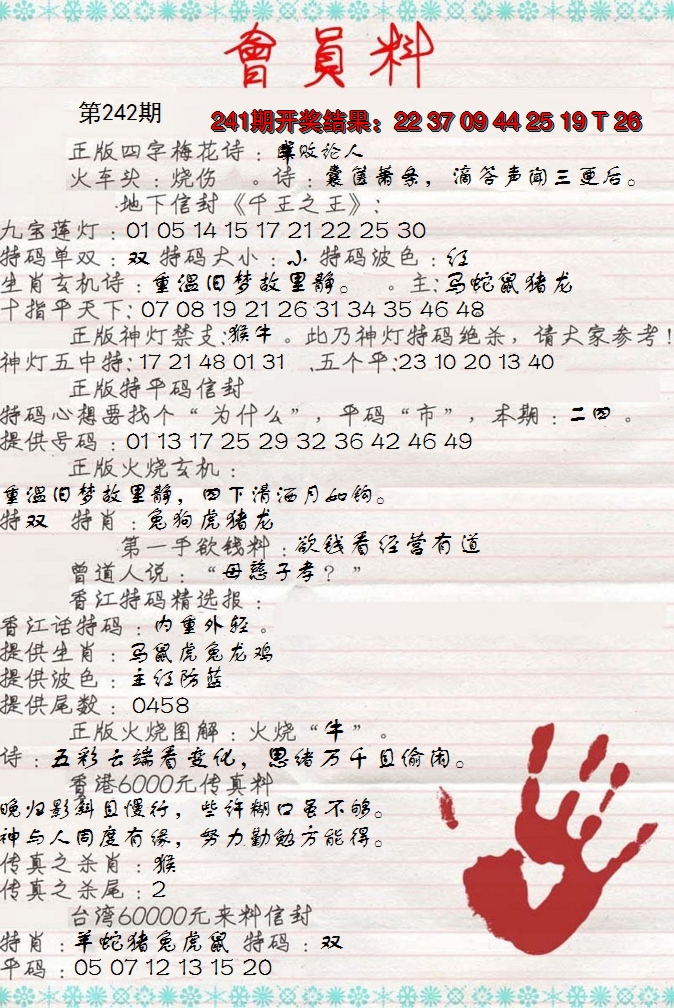 會員料
第242期
241期开奖结果：22 37 09 44 25 19 T 26
正版四字梅花诗：成败论人
火车头：烧伤 。诗：囊箧萧条，滴答声闻三更后。
地下信封《千王之王》：
九宝莲灯：01 05 14 15 17 21 22 25 30
特码单双：双 特码大小：小 特码波色：红
生肖玄机诗：重温旧梦故里静。 。主：马蛇鼠猪龙
十指平天下：07 08 19 21 26 31 34 35 46 48
正版神灯禁支：猴牛 。此乃神灯特码绝杀，请大家参考！
神灯五中特：17 21 48 01 31 .五个平：23 10 20 13 40
正版特平码信封
特码心想要找个“为什么”，平码“市”，本期：二四 。
提供号码：01 13 17 25 29 32 36 42 46 49
正版火烧玄机：
重温旧梦故里静，四下清洒月如钩。
特双 特肖：兔狗虎猪龙
第一手欲钱料：欲钱看经营有道
曾道人说：“母慈子孝？”
香江特码精选报：
香江话特码：内重外轻 。
提供生肖：马鼠虎兔龙鸡
提供波色：主红防蓝
提供尾数：0458
正版火烧图解：火烧“牛”。
诗：五彩云端看变化，思绪万千且偷闲。
香港6000元传真料
晚归影斜且慢行，些许糊口虽不够。
神与人同度有缘，努力勤勉方能得。
传真之杀肖：猴
传真之杀尾：2
台湾60000元来料信封
特肖：羊蛇猪兔虎鼠 特码：双
平码：05 07 12 13 15 20